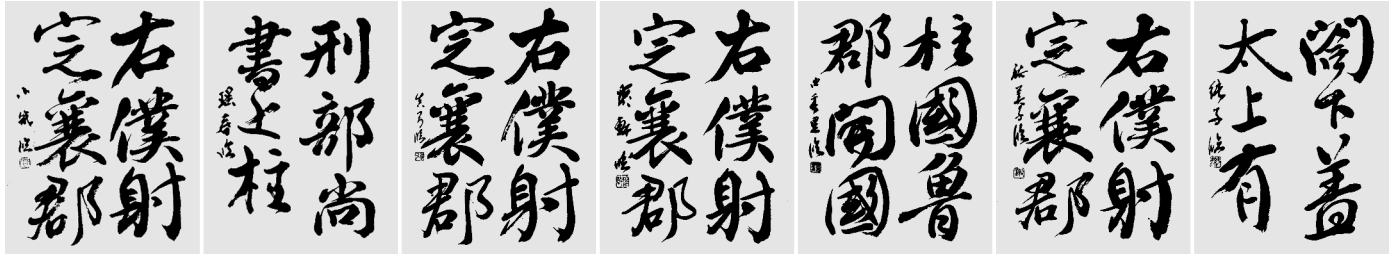 右僕射
定襄郡
刑部尚
書上柱
右僕射
定襄郡
右僕射
定襄郡
柱國魯
郡開國
右僕射
定襄郡
閤下盖
太上有
純子臨